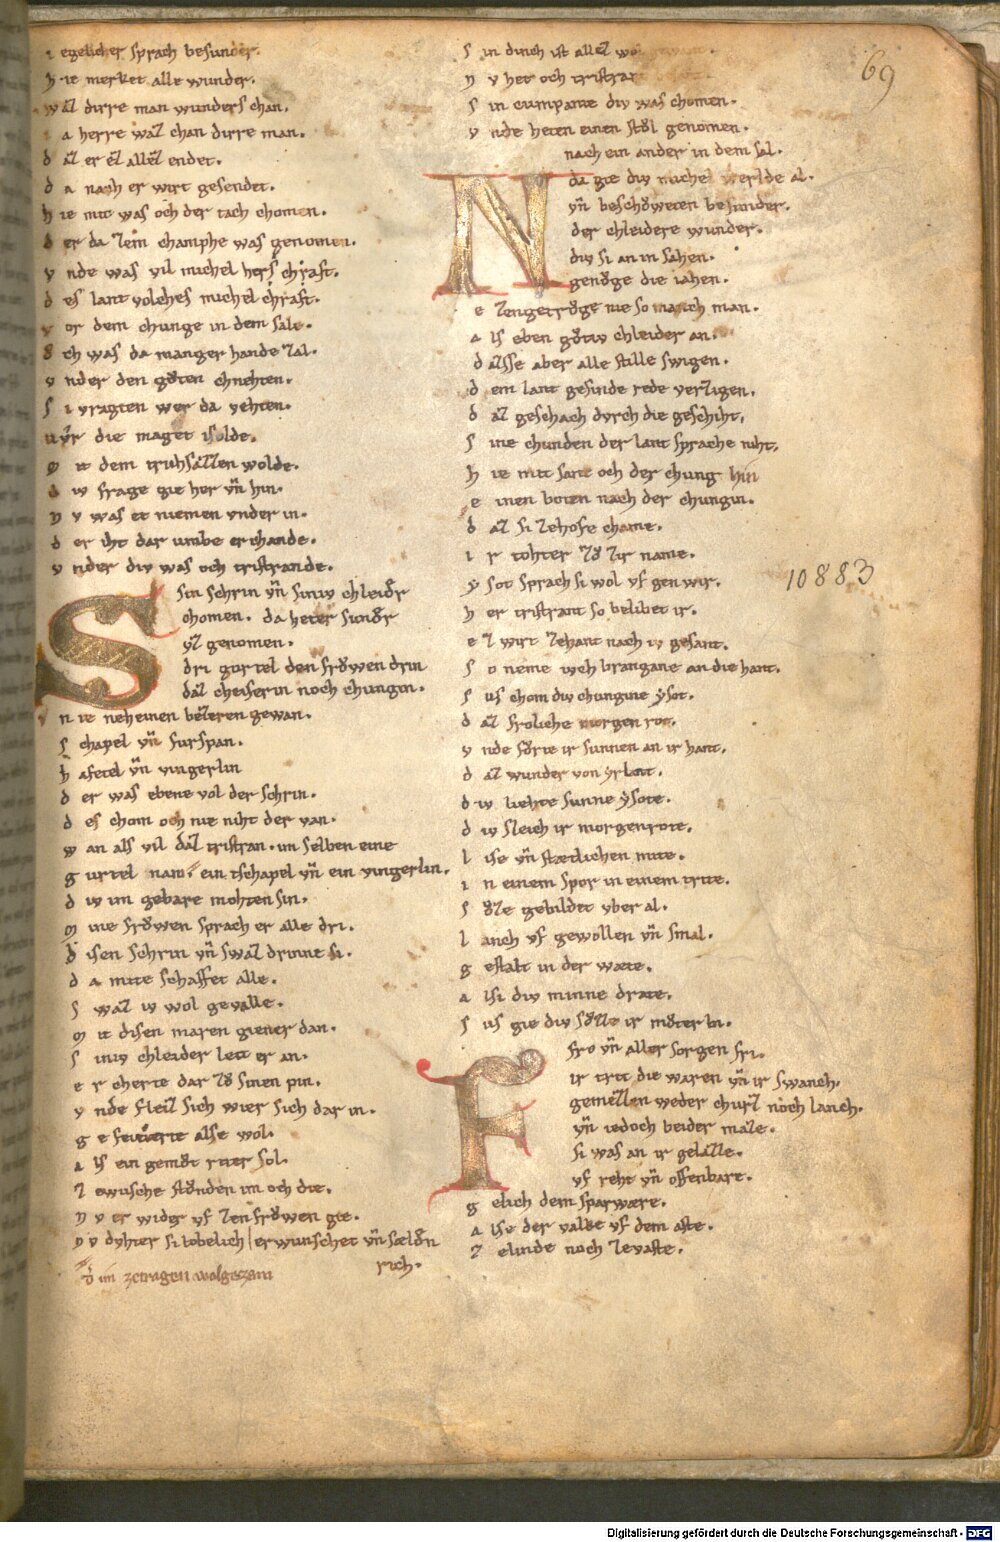 i egelicher sprach besunder.
h ie merket alle wunder.
w aͤz dirre man wunders chan.
i a herre waͤz chan dirre man.
d aͤz er eͤz alleͤz endet.
d a nach er wirt gesendet.
h ie mit was och der tach chomen.
d er da zem champhe was genomen.
v nde was vil michel hers chraft.
d es lant volches michel chraft.
v or dem chunge in dem sale.
ǒ ch was da manger hande zal.
v nder den gǒten chnehten.
s i vragten wer da vehten.
wr die maget isolde.
m it dem truhsaͤzzen wolde.
d iv frage gie her vn̄ hin.
n v was et niemen vnder in.
d er iht dar umbe erchande.
v nder div was och tristrande.
Sin schrin vn̄ siniv chleidr̄
chomen. da heter sundr̄
vz genomen.
dri gurtel den frǒwen drin
daͤz cheiserin noch chungin.
n ie neheinen bezeren gewan.
s chapel vn̄ furspan.
h afetel vn̄ vingerlin
d er was ebene vol der schrin.
d es chom och nie niht der van.
w an als vil daͤz tristran. im selben eine
g urtel nam. ein tschapel vn̄ ein vingerlin.
d iv im gebare mohten sin.
m ine frǒwen sprach er alle dri.
d isen schrin vn̄ swaz drinne si.
d a mite schaffet alle.
s waz iv wol gevalle.
m it disen maren giener dan.
s iniv chleider leit er an.
e r cherte dar zǒ sinen pin.
v nde fleiz sich wier sich dar in.
g e feitierte alse wol.
a ls ein gemǒt riter sol.
z ewnsche stǒnden im och die.
n v er wider vf zen frǒwen gie.
n v dvhter si lobelich erwunschet vn̄ sældn̄
rich.
v̄ im zetragen wolgezam
s in dinch ist allez wol
n v het och tristran
s in cumpanie div was chomen.
v nde heten einen stǒl genomen.
nach ein ander in dem sal.
Nda gie div michel werlde al.
vn̄ beschǒweten besunder.
der chleidere wunder.
div si an in sahen.
genǒge die iahen.
e zengetrǒge nie so manich man.
a ls eben gǒtiv chleider an.
d aͤsse aber alle stille swigen.
d em lant gesinde rede verzigen.
d aͤz geschach dvrch die geschiht.
s ine chunden der lant sprache niht.
h ie mit sant och der chung hin
e inen boten nach der chungin.
d az si zehofe chame.
i r tohter zǒ zir name.
y sot sprach si wol vf gen wir.
h er tristrant so belibet ir.
e z wirt zehant nach iv gesant.
s o neme iveh brangane an die hant.
s us chom div chungine ẏsot.
d az froliche morgen rot.
v nde fǒrte ir sunnen an ir hant.
d az wunder von ẏrlant.
d iv liehte sunne ẏsote.
d iv sleich ir morgenrote.
l ise vn̄ stætlichen mite.
i n einem spor in einem trite.
s ǒze gebildet vber al.
l anch vf gewollen vn̄ smal.
g estalt in der wæte.
a lsi div minne dræte.
s us gie div sǒzze ir mǒter bi.
Fro vn̄ aller sorgen fri.
ir trit die waren vn̄ ir swanch.
gemezzen weder churz noch lanch.
vn̄ iedoch beider maze.
si was an ir gelazze.
vf reht vn̄ offenbare.
g elich dem sparwære.
a lse der valke vf dem aste.
z elinde noch zevaste.
69
10883
Digitalisierung gefördert durch die Deutsche Forschungsgemeinschaft - DFG